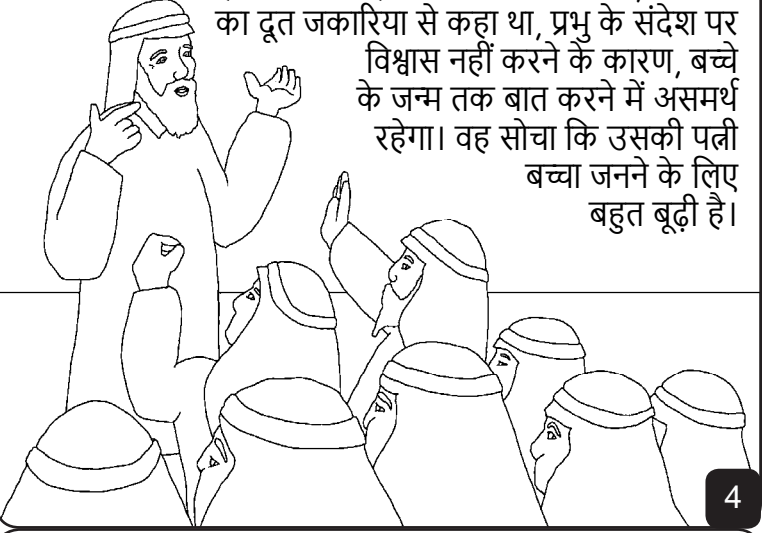 का दूत जकारिया से कहा था, प्रभु के संदेश पर
विश्वास नहीं करने के कारण, बच्चे
के जन्म तक बात करने में असमर्थ
रहेगा। वह सोचा कि उसकी पत्नी
बच्चा जनने के लिए
बहुत बूढ़ी है।
4